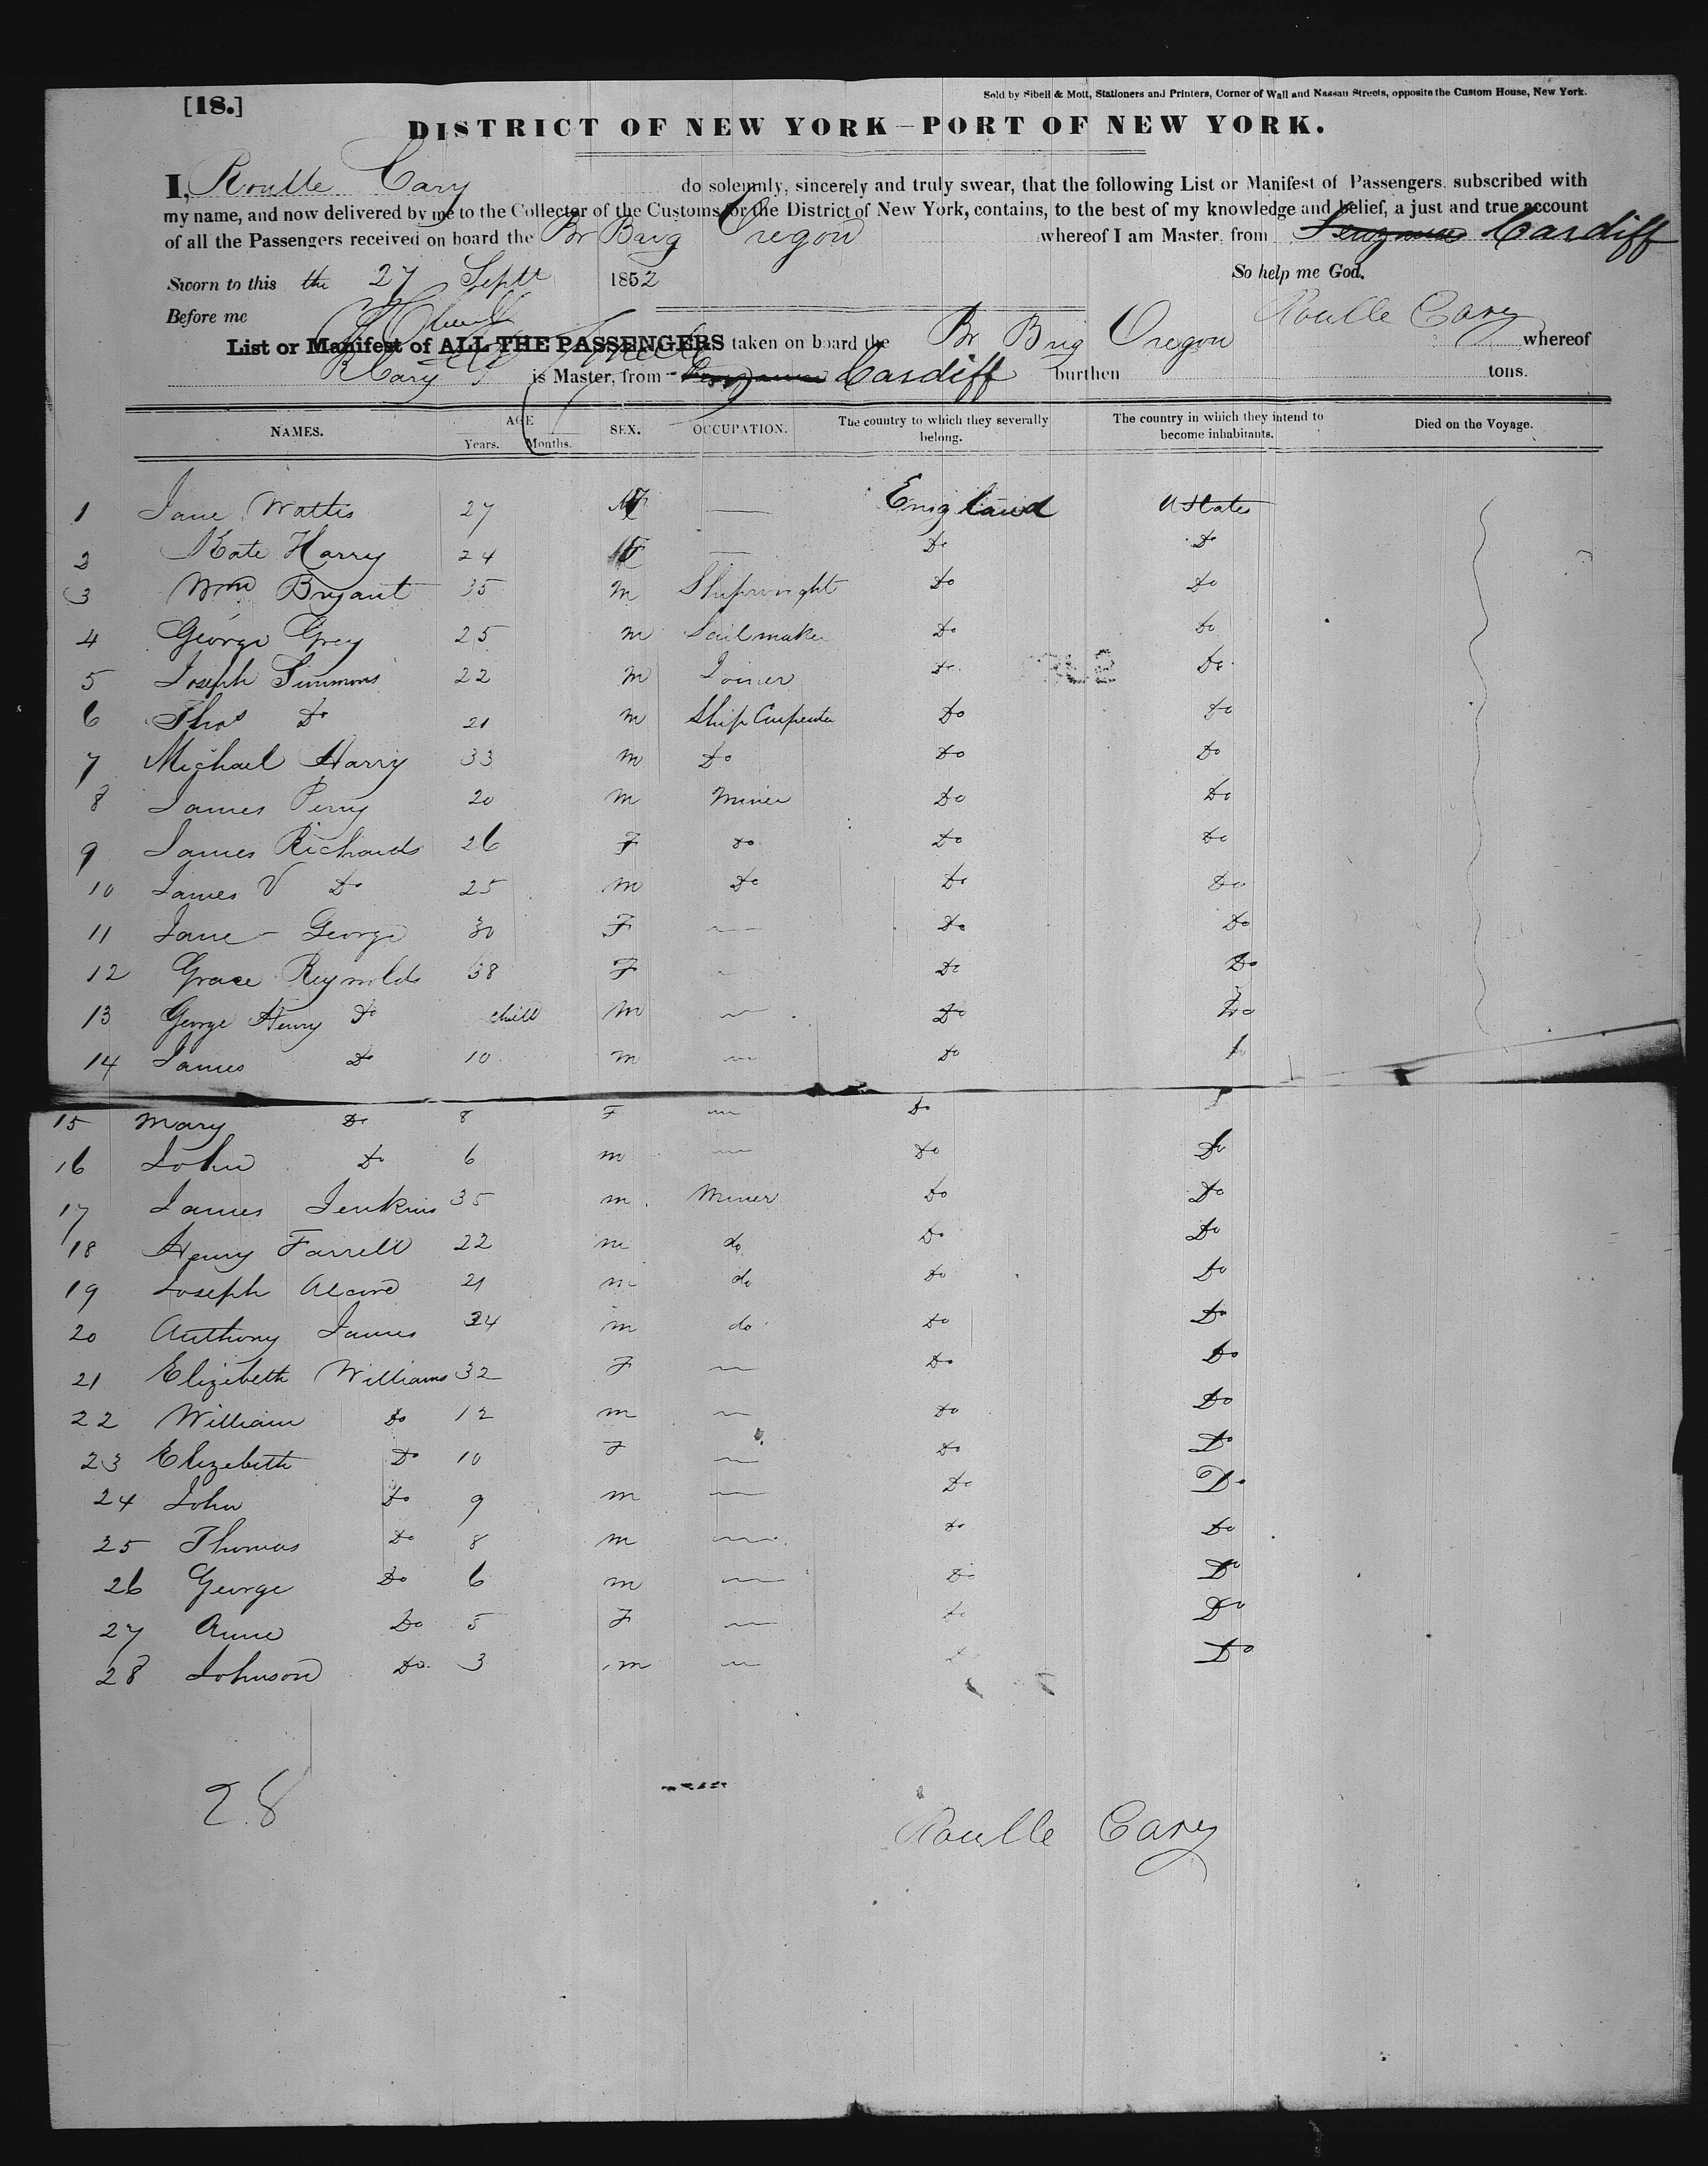 [18.]
Sold by Sibell & Mott, Stationers and Printers, Corner of Wall and Nassau Streets, opposite the Custom House, New York.
DISTRICT OF NEW YORK—PORT OF NEW YORK.
I, Roulle Cary do solemnly, sincerely and truly swear, that the following List or Manifest of Passengers, subscribed with
my name, and now delivered by me to the Collector of the Customs for the District of New York, contains, to the best of my knowledge and belief, a just and true account
of all the Passengers received on board the Br Barg Oregon whereof I am Master, from Cardiff
Sworn to this the 27 Septr 1852 So help me God.
Before me Roulle Cary
List or Manifest of ALL THE PASSENGERS taken on board the Br Brig Oregon whereof
R Cary is Master, from Cardiff burthen tons.
NAMES. AGE Years. Months. SEX. OCCUPATION. The country to which they severally belong. The country in which they intend to become inhabitants. Died on the Voyage.
1 Jane Wattis 27 F — England U States
2 Kate Harry 24 F — Do Do
3 Wm Bryant 35 m Shipwright Do Do
4 George Grey 25 m Sailmaker Do Do
5 Joseph Simmons 22 m Joiner Do Do
6 Thos Do 21 m Ship Carpenter Do Do
7 Michael Harry 33 m Do Do Do
8 James Perry 20 m Miner Do Do
9 James Richards 26 F Do Do Do
10 James V Do 25 m Do Do Do
11 Jane George 30 F — Do Do
12 Grace Reynolds 38 F — Do Do
13 George Henry Do child m — Do Do
14 James Do 10 m — Do
15 Mary Do 8 F — Do
16 John Do 6 m — Do Do
17 James Jenkins 35 m Miner Do Do
18 Henry Farrell 22 m do Do Do
19 Joseph 21 m do Do Do
20 Anthony James 24 m do Do Do
21 Elizibeth Williams 32 F — Do Do
22 William Do 12 m — Do Do
23 Elizebeth Do 10 F — Do Do
24 John Do 9 m — Do Do
25 Thomas Do 8 m — Do Do
26 George Do 6 m — Do Do
27 Anne Do 5 F — Do Do
28 Johnson Do 3 m — Do
28
Roulle Cary